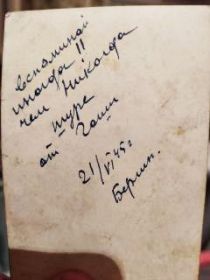 вспоминай
иногда
чем никогда
Шуре
от
21/VI 45 г
Берлин.